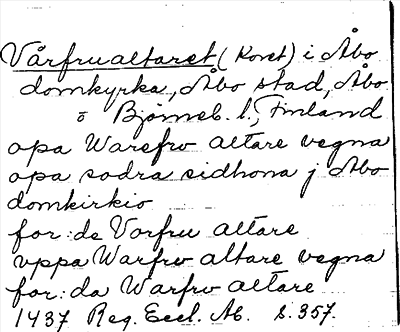 Vårfrualtaret (Koret) i Åbo
domkyrka, Åbo stad, Åbo
o Bjorneb. l., Finland
opa Warefrv altare vegna
opa sodra sidhona j Åbo
domkirkio
for: de Vorfru altare
vppa Warfrv altare vegna
for: da Warfrv altare
1437 Reg. Eccl. Ab. s. 357.